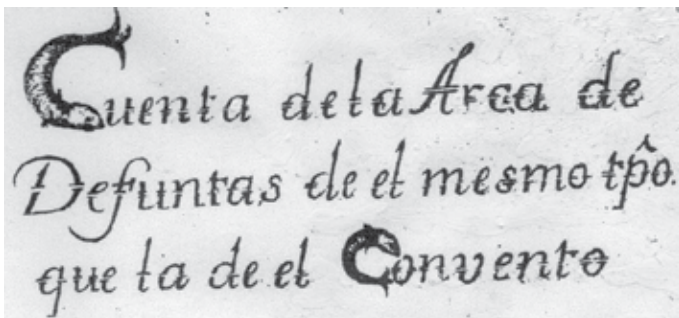 Cuenta de la Arca de
Defuntas de el mesmo tp̂o.
que la de el Convento